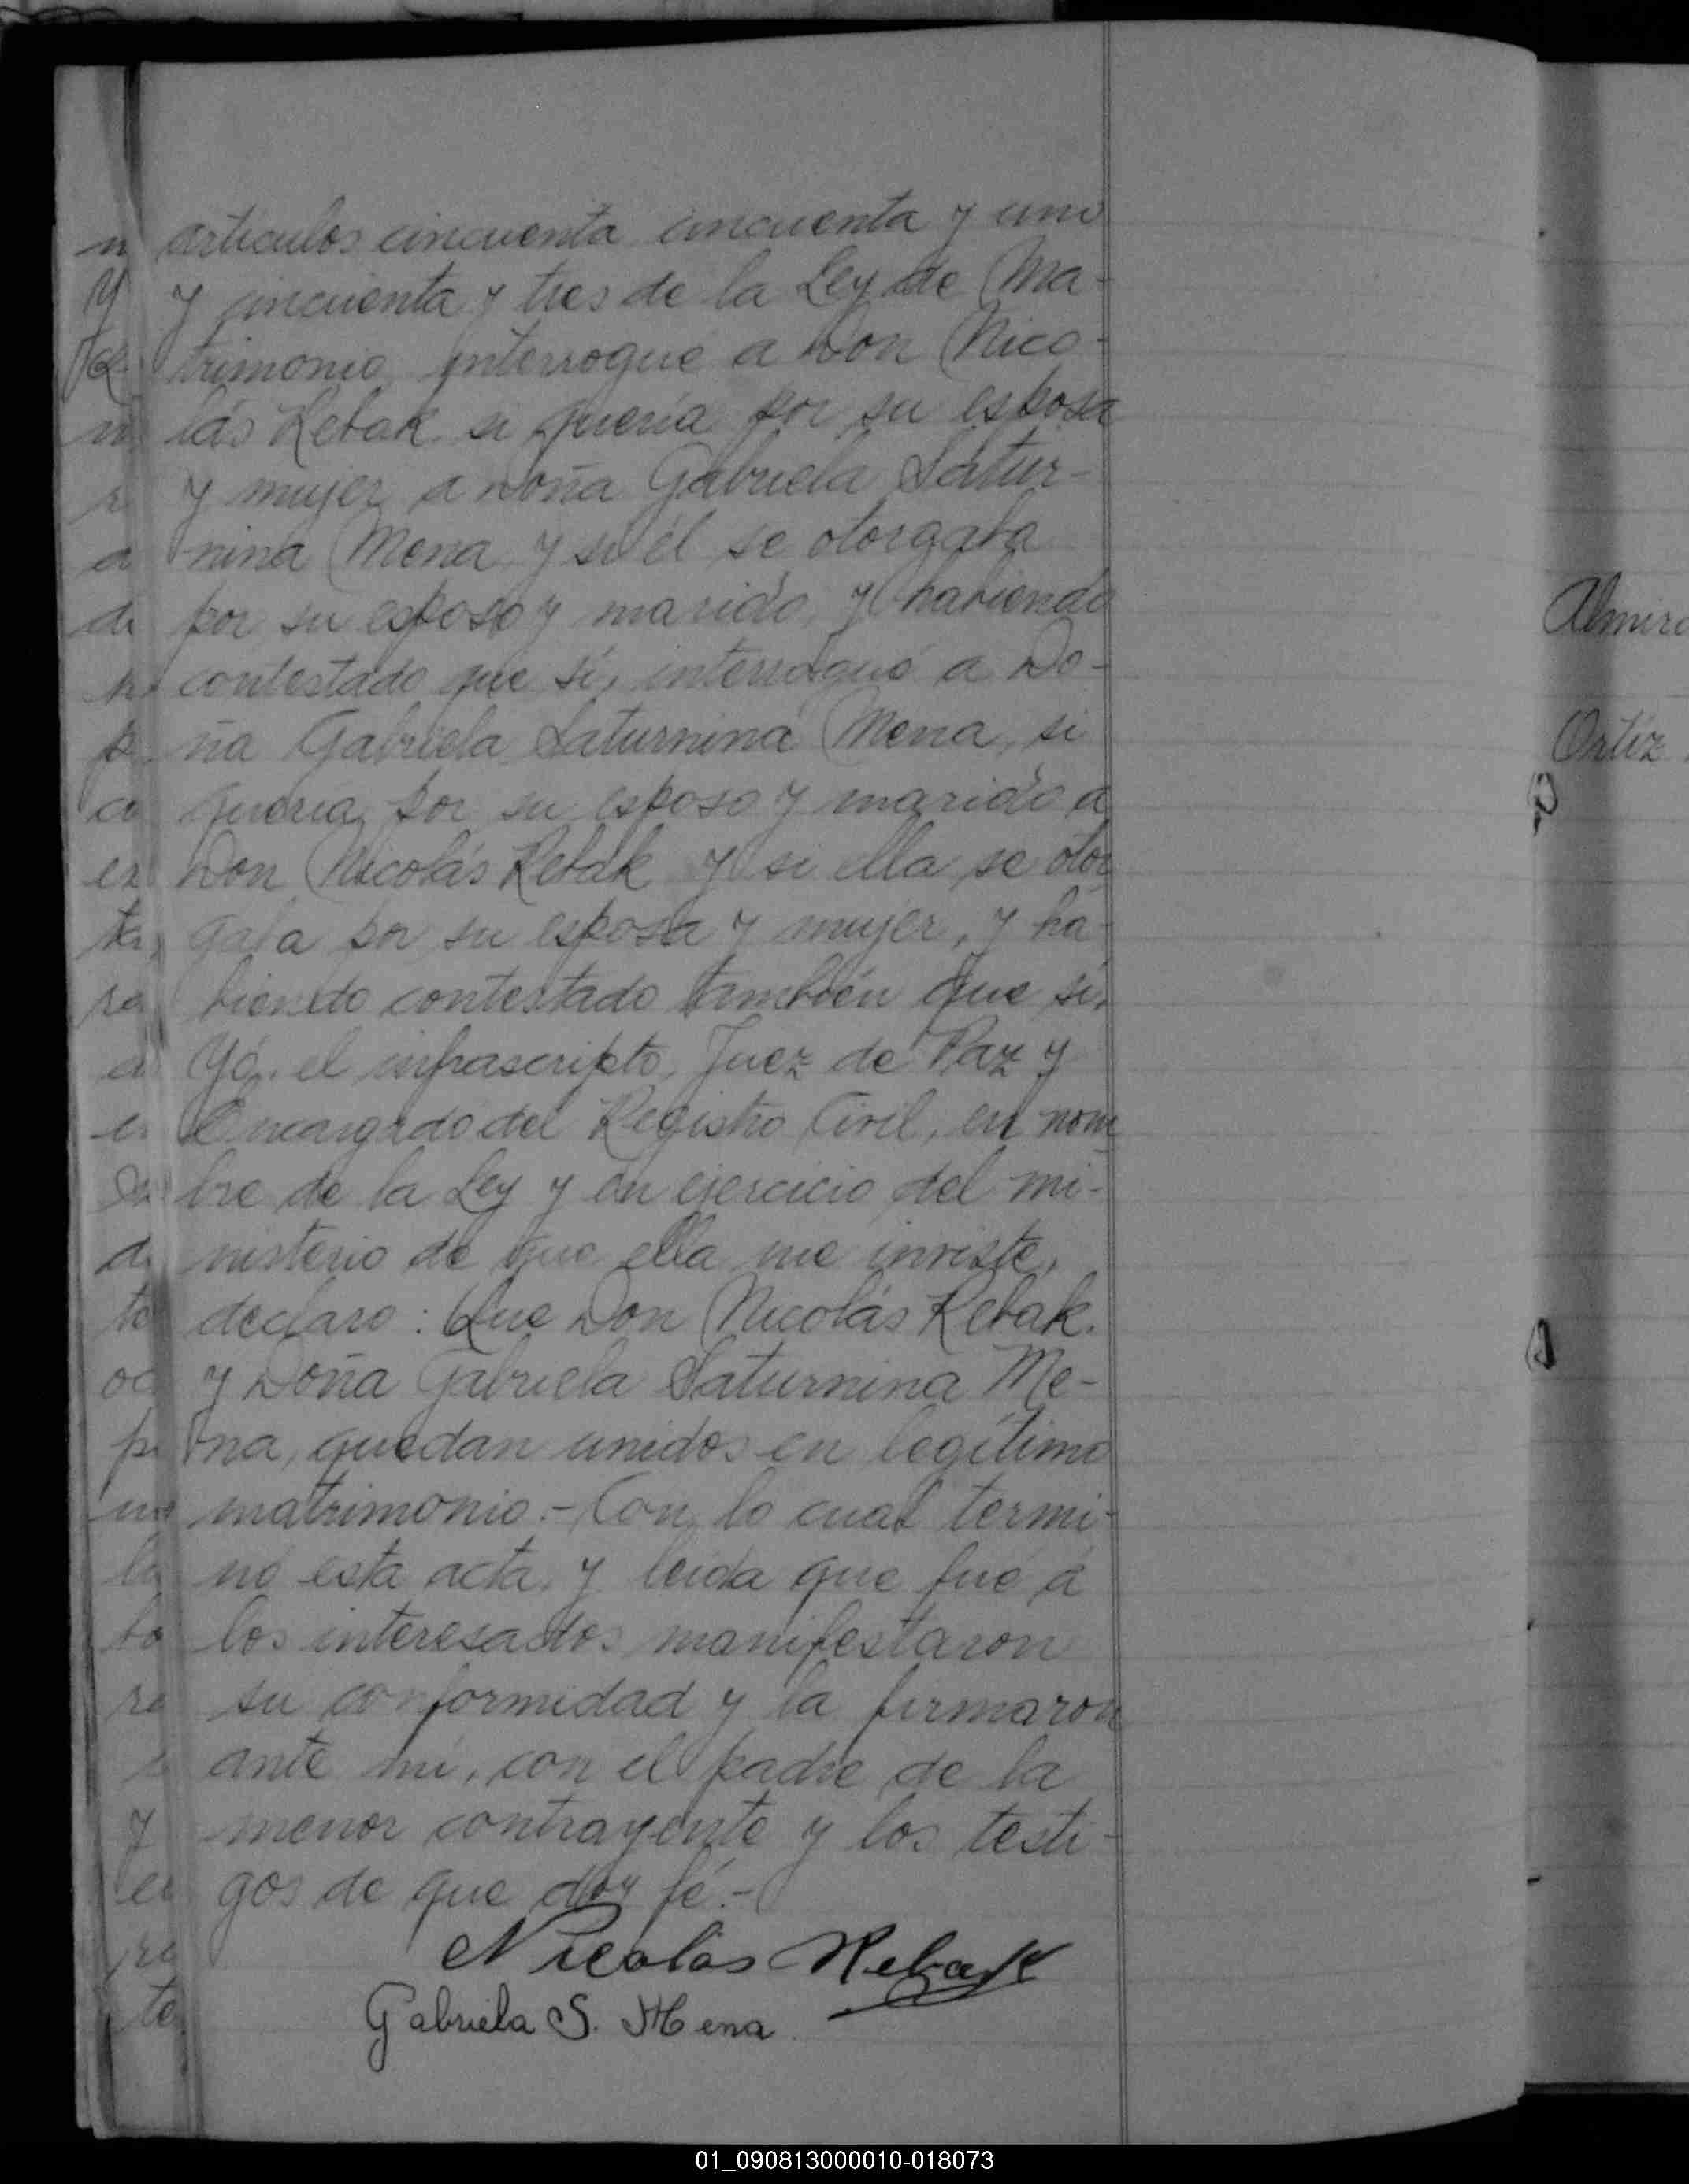 articulos cincuenta cincuenta y uno
y cincuenta y tres de la Ley de Ma-
trimonio, interrogué a Don Nico-
lás Rebak si quería por su esposa
y mujer a Doña Gabriela Satur-
nina Mena y si él se otorgaba
por su esposo y marido, y habiendo
contestado que sí, interrogué a Do-
ña Gabriela Saturnina Mena, si
quería por su esposo y marido a
Don Nicolás Rebak y si ella se otor
gaba por su esposa y mujer, y ha-
biendo contestado también que sí,
Yó, el infrascripto, Juez de Paz y
Encargado del Registro Civil, en nom
bre de la Ley y en ejercicio del mi-
nisterio de que ella me inviste,
declaro: Que Don Nicolás Rebak
y Doña Gabriela Saturnina Me-
na, quedan unidos en legítimo
matrimonio.- Con lo cual termi-
nó esta acta, y leída que fué á
los interesados manifestaron
su conformidad y la firmaron
ante mí, con el padre de la
menor contrayente y los testi-
gos de que doy fé.-
Nicolás Rebak
Gabriela S. Mena
Ortíz
01_090813000010-018073